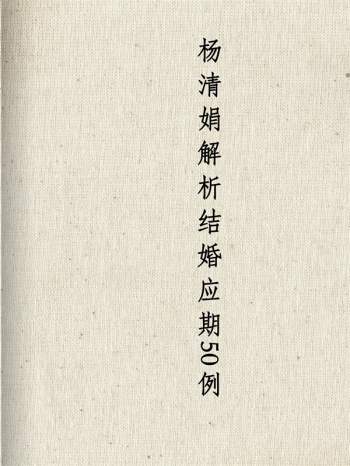 杨清娟解析结婚应期50例